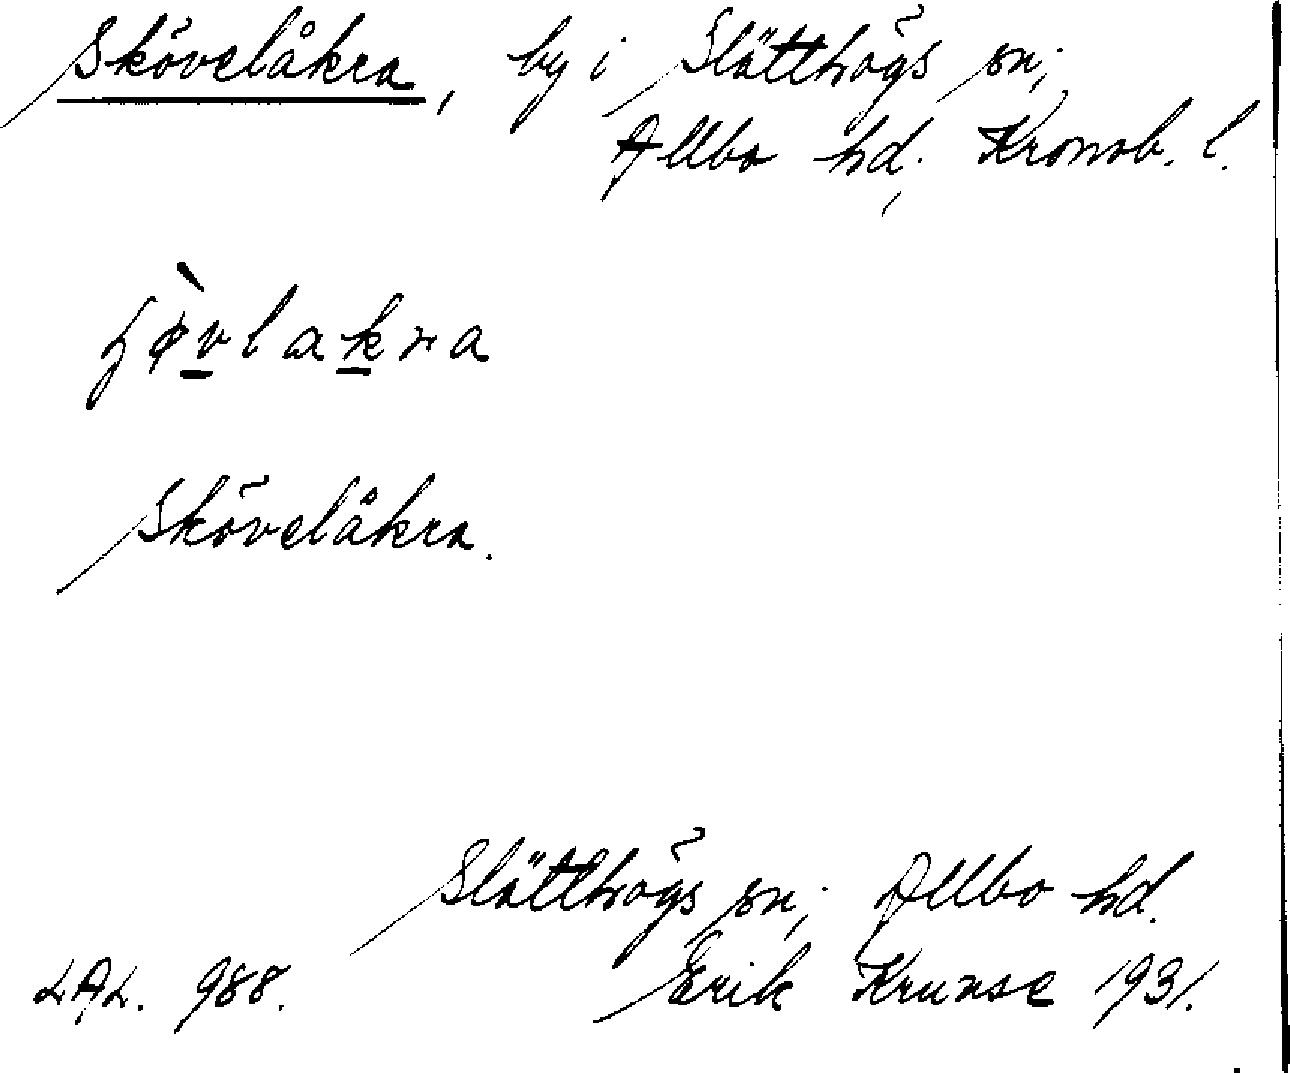 Skövelåkra, by i Slätthögs sn;
Allbo hd; Kronob. l.
Skövelåkra.
Slätthögs sn; Allbo hd.
LAL. 988. Erik Krunse 1931.